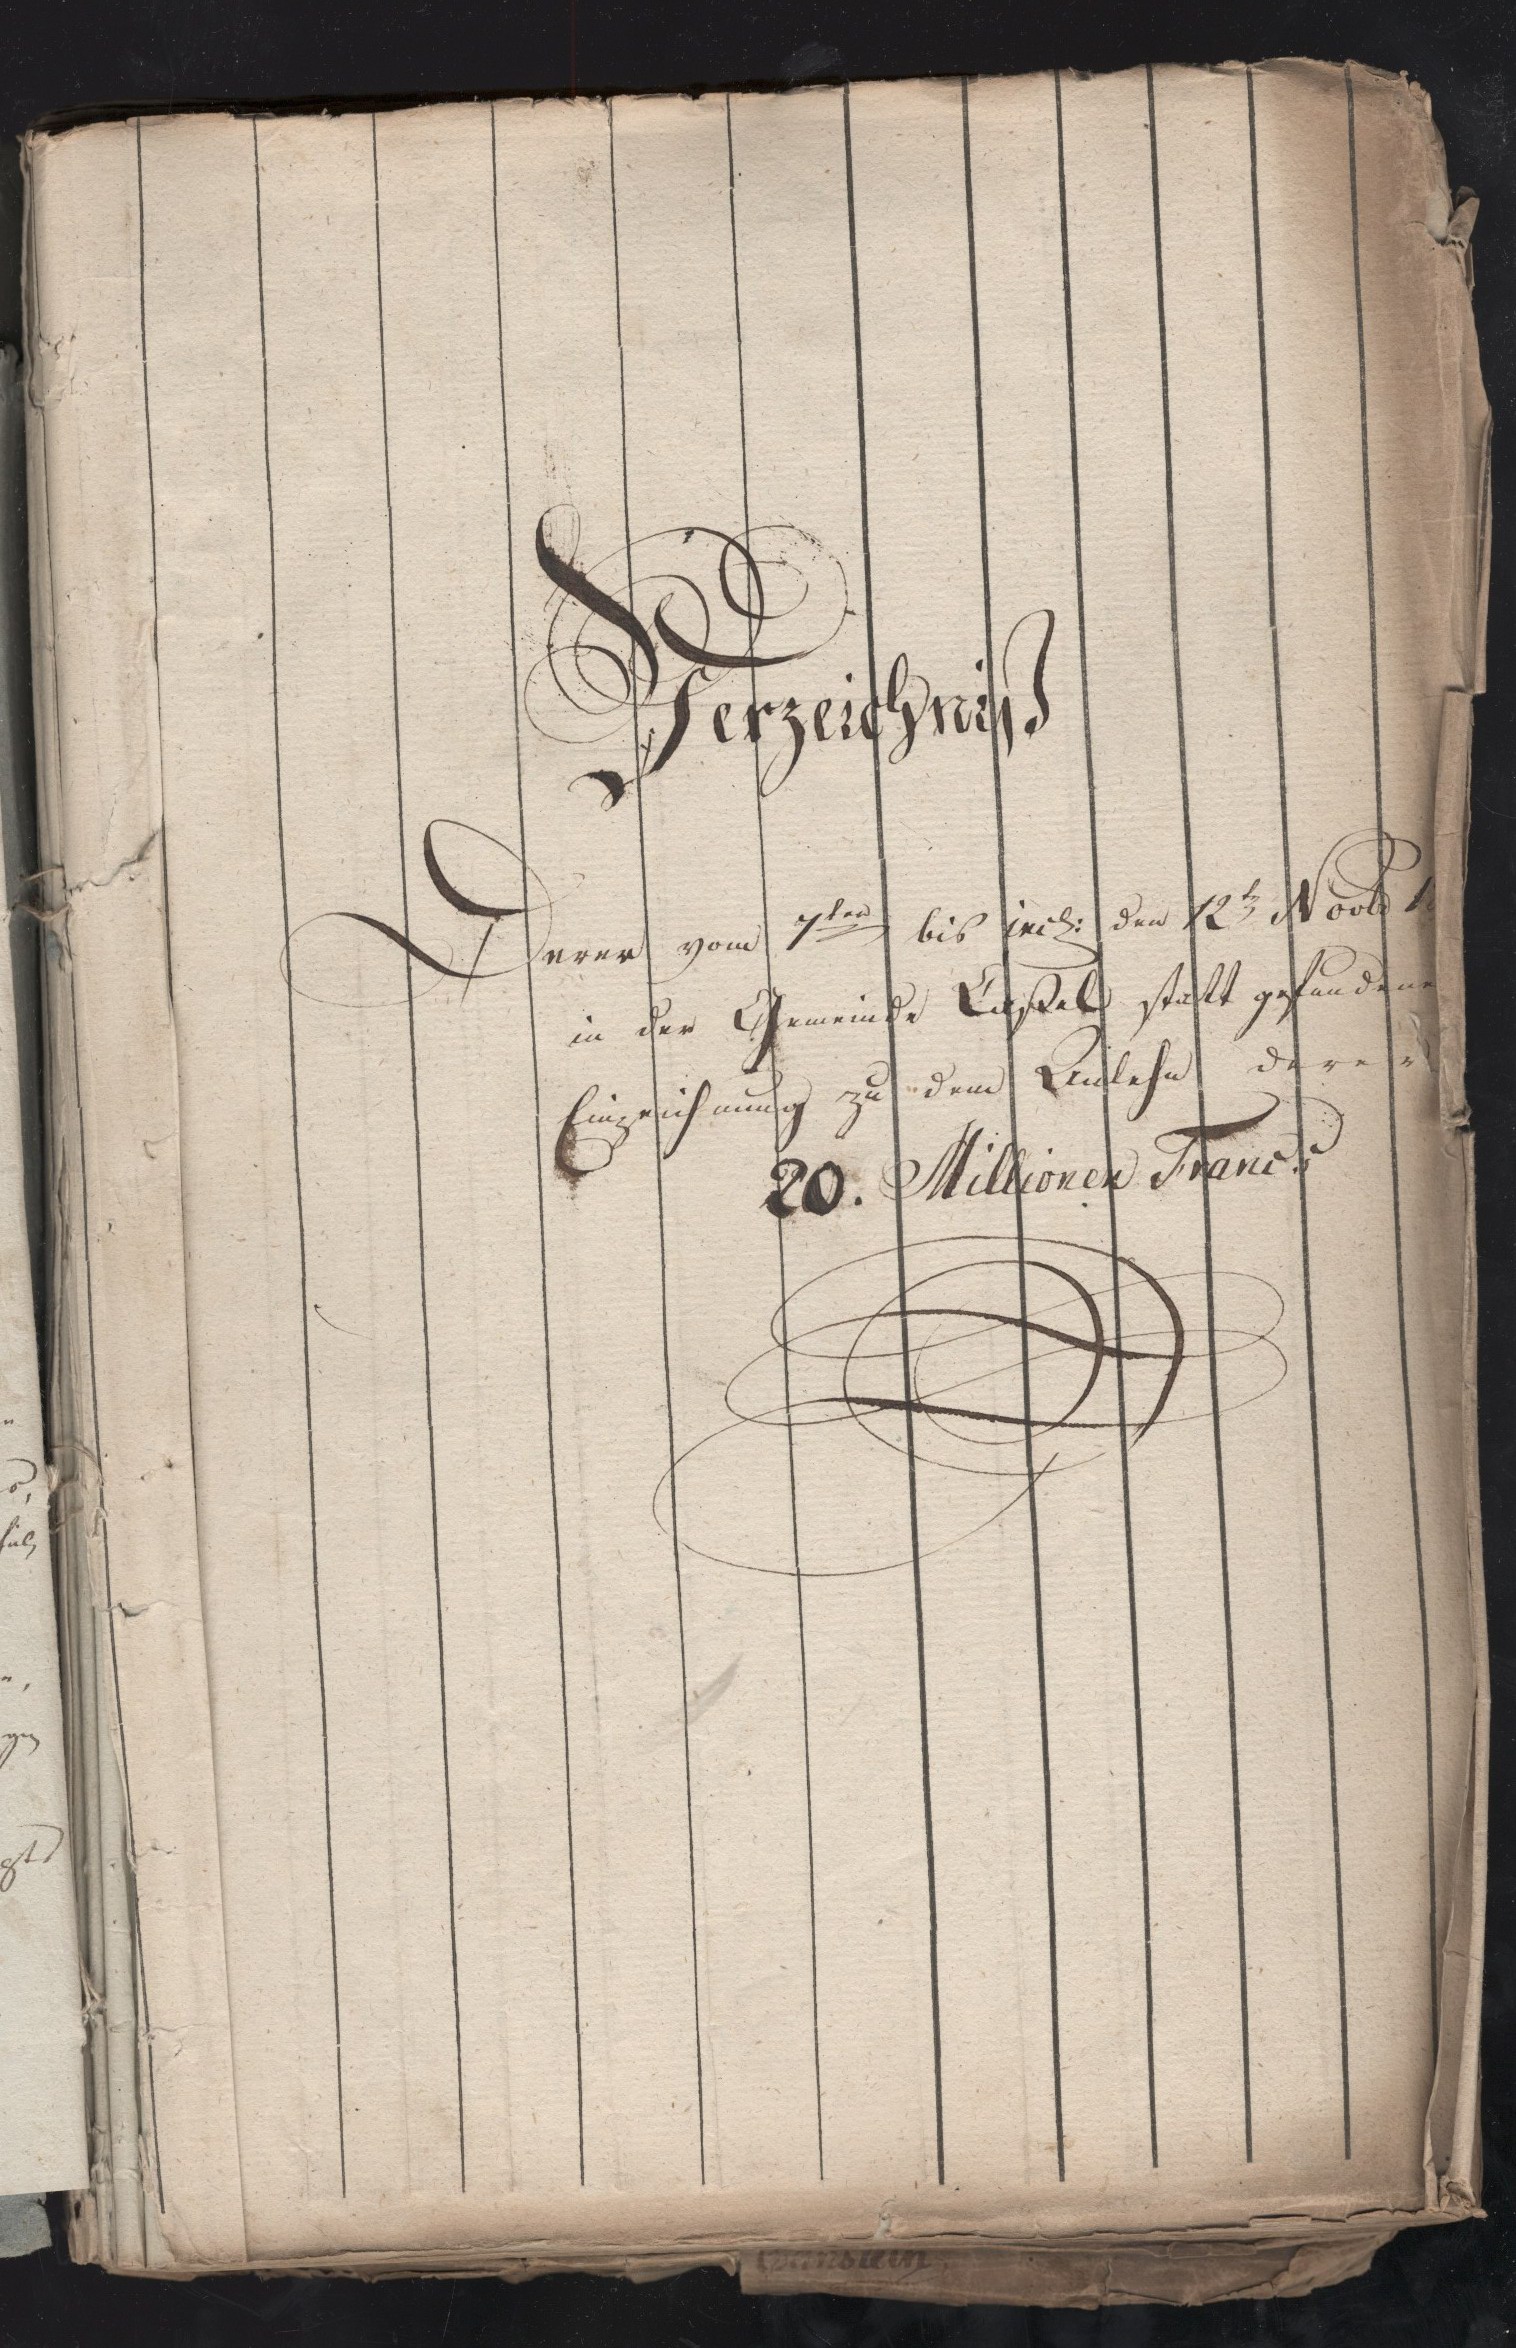 Verzeichniß
Derer vom 7ten bis incl: den 12t Novbr
in der Gemeinde Cassel statt gefundene
Einzeichnung zu dem Anlehn derer
20. Millionen Francs